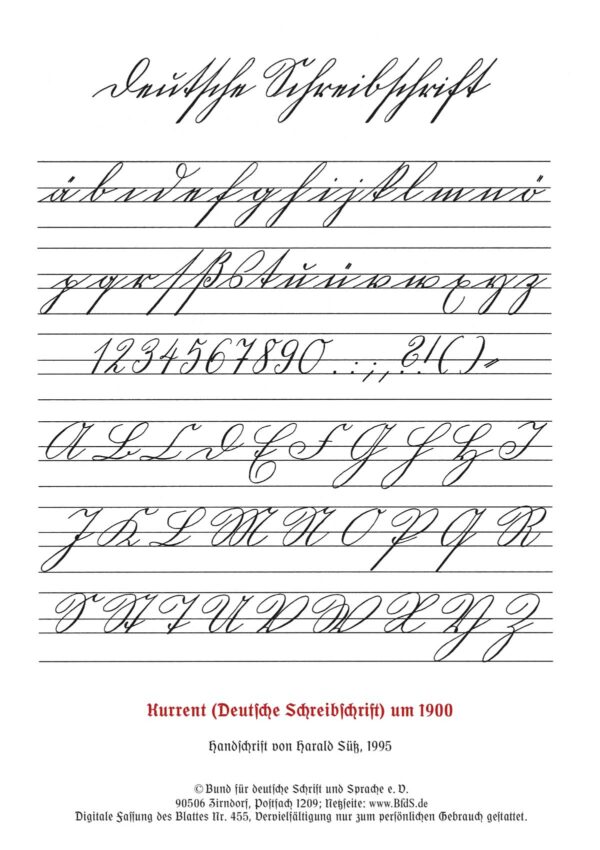 Deutſche Schreibſchrift
ä b c d e f g h i j k l m n ö
p q r ſ ß s t u ü v w x y z
1 2 3 4 5 6 7 8 9 0 . : ; , ? ! ( ) =
A B C D E F G H H I
J K L M N O P Q R
S St T U V W X Y Z
Kurrent (Deutſche Schreibſchrift) um 1900
Handſchrift von Harald Süß, 1995
© Bund für deutſche Schrift und Sprache e. V.
90506 Zirndorf, Poſtfach 1209; Netzſeite: www.BfdS.de
Digitale Faſſung des Blattes Nr. 455, Vervielfältigung nur zum perſönlichen Gebrauch geſtattet.